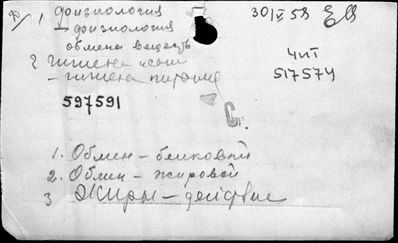 1 физиология 30/V 58
– физиология
обмена веществ
2 гигиена чит
– гигиена питания 517574
597591
С.
1. Обмен – белковый
2. Обмен – жировой
3 Жиры – действие